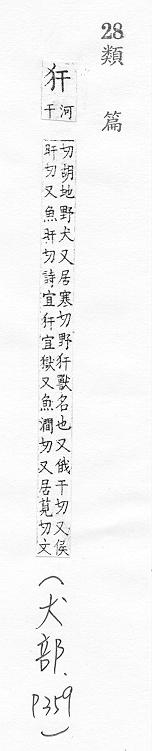 28
類篇
犴
河
干
切胡地野犬又居寒切野犴獸名也又俄干切又侯
旰切又魚旰切詩宜犴宜獄又魚澗切又居莧切文
(犬部. P359)